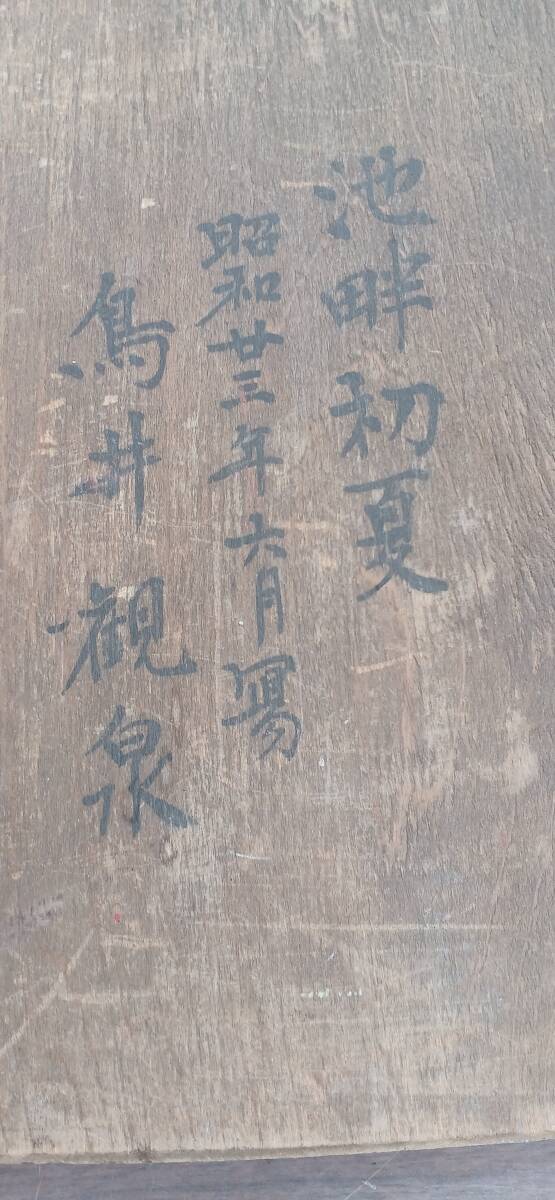 池畔初夏
昭和廿三年六月写
鳥井観泉